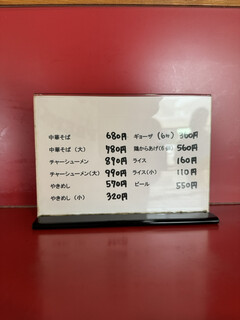 中華そば 680円
中華そば（大） 780円
チャーシューメン 890円
チャーシューメン(大) 990円
やきめし 570円
やきめし（小） 320円
ギョーザ（6ヶ） 360円
鶏からあげ(6ヶ) 560円
ライス 160円
ライス(小) 110円
ビール 550円